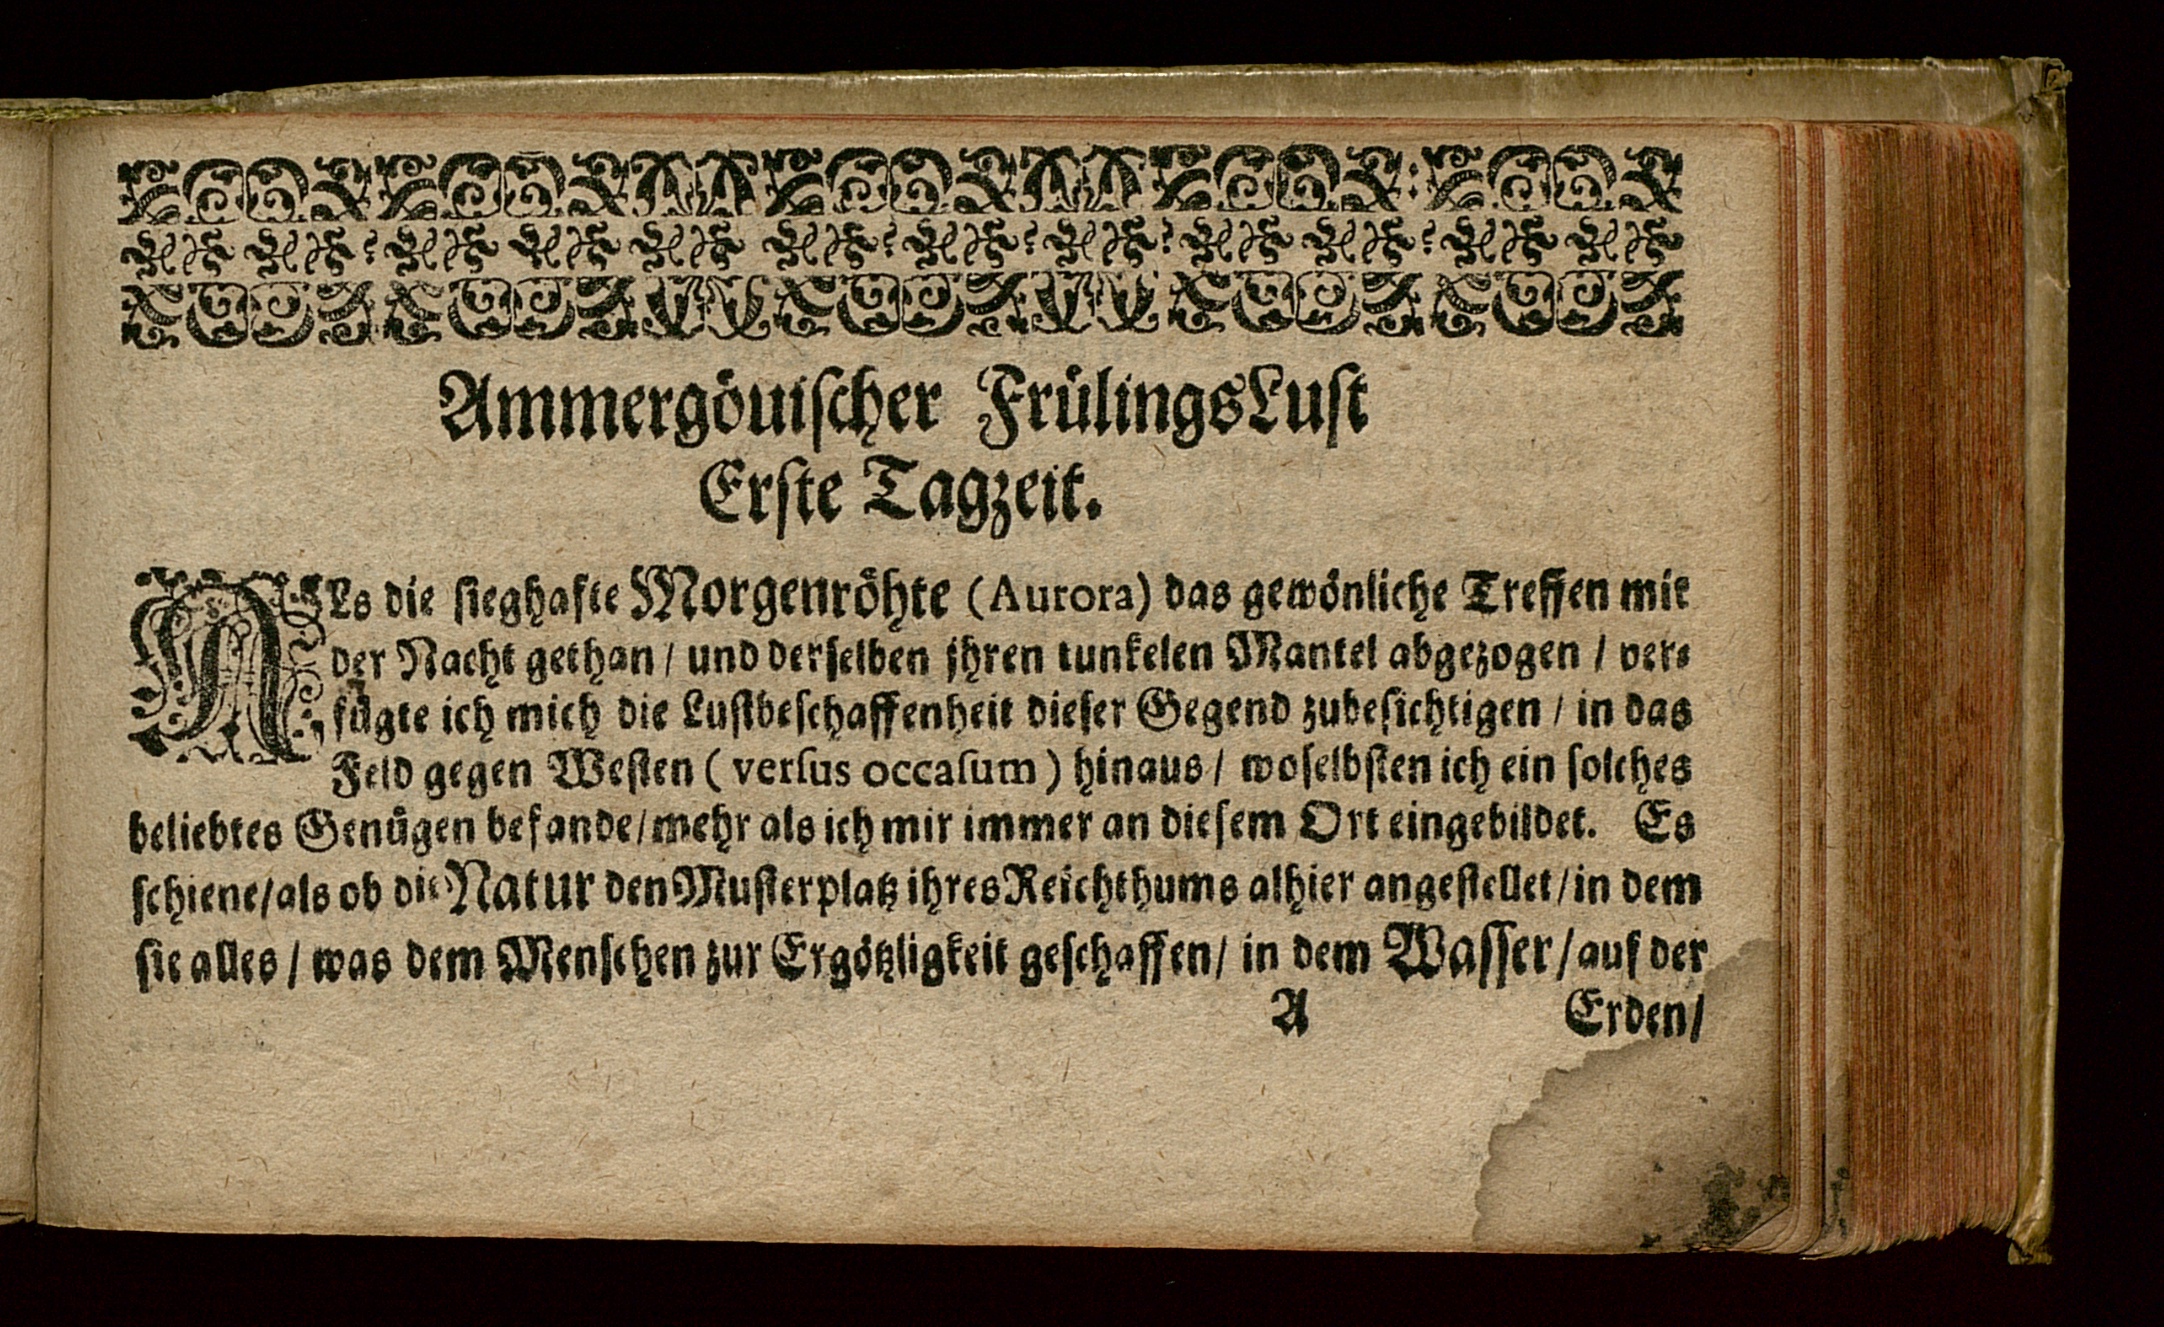 Ammergöuiſcher FrülingsLuſt
Erſte Tagzeit.
ALs die ſieghafte Morgenröhte (Aurora) das gewönliche Treffen mit
der Nacht gethan / und derſelben jhren tunkelen Mantel abgezogen / ver⸗
fügte ich mich die Luſtbeſchaffenheit dieſer Gegend zubeſichtigen / in das
Feld gegen Weſten ( verſus occaſum ) hinaus / woſelbſten ich ein ſolches
beliebtes Genügen befande / mehr als ich mir immer an dieſem Ort eingebildet. Es
ſchiene / als ob die Natur den Muſterplatz ihres Reichthums alhier angeſtellet / in dem
ſie alles / was dem Menſchen zur Ergötzligkeit geſchaffen / in dem Waſſer / auf der
A Erden /